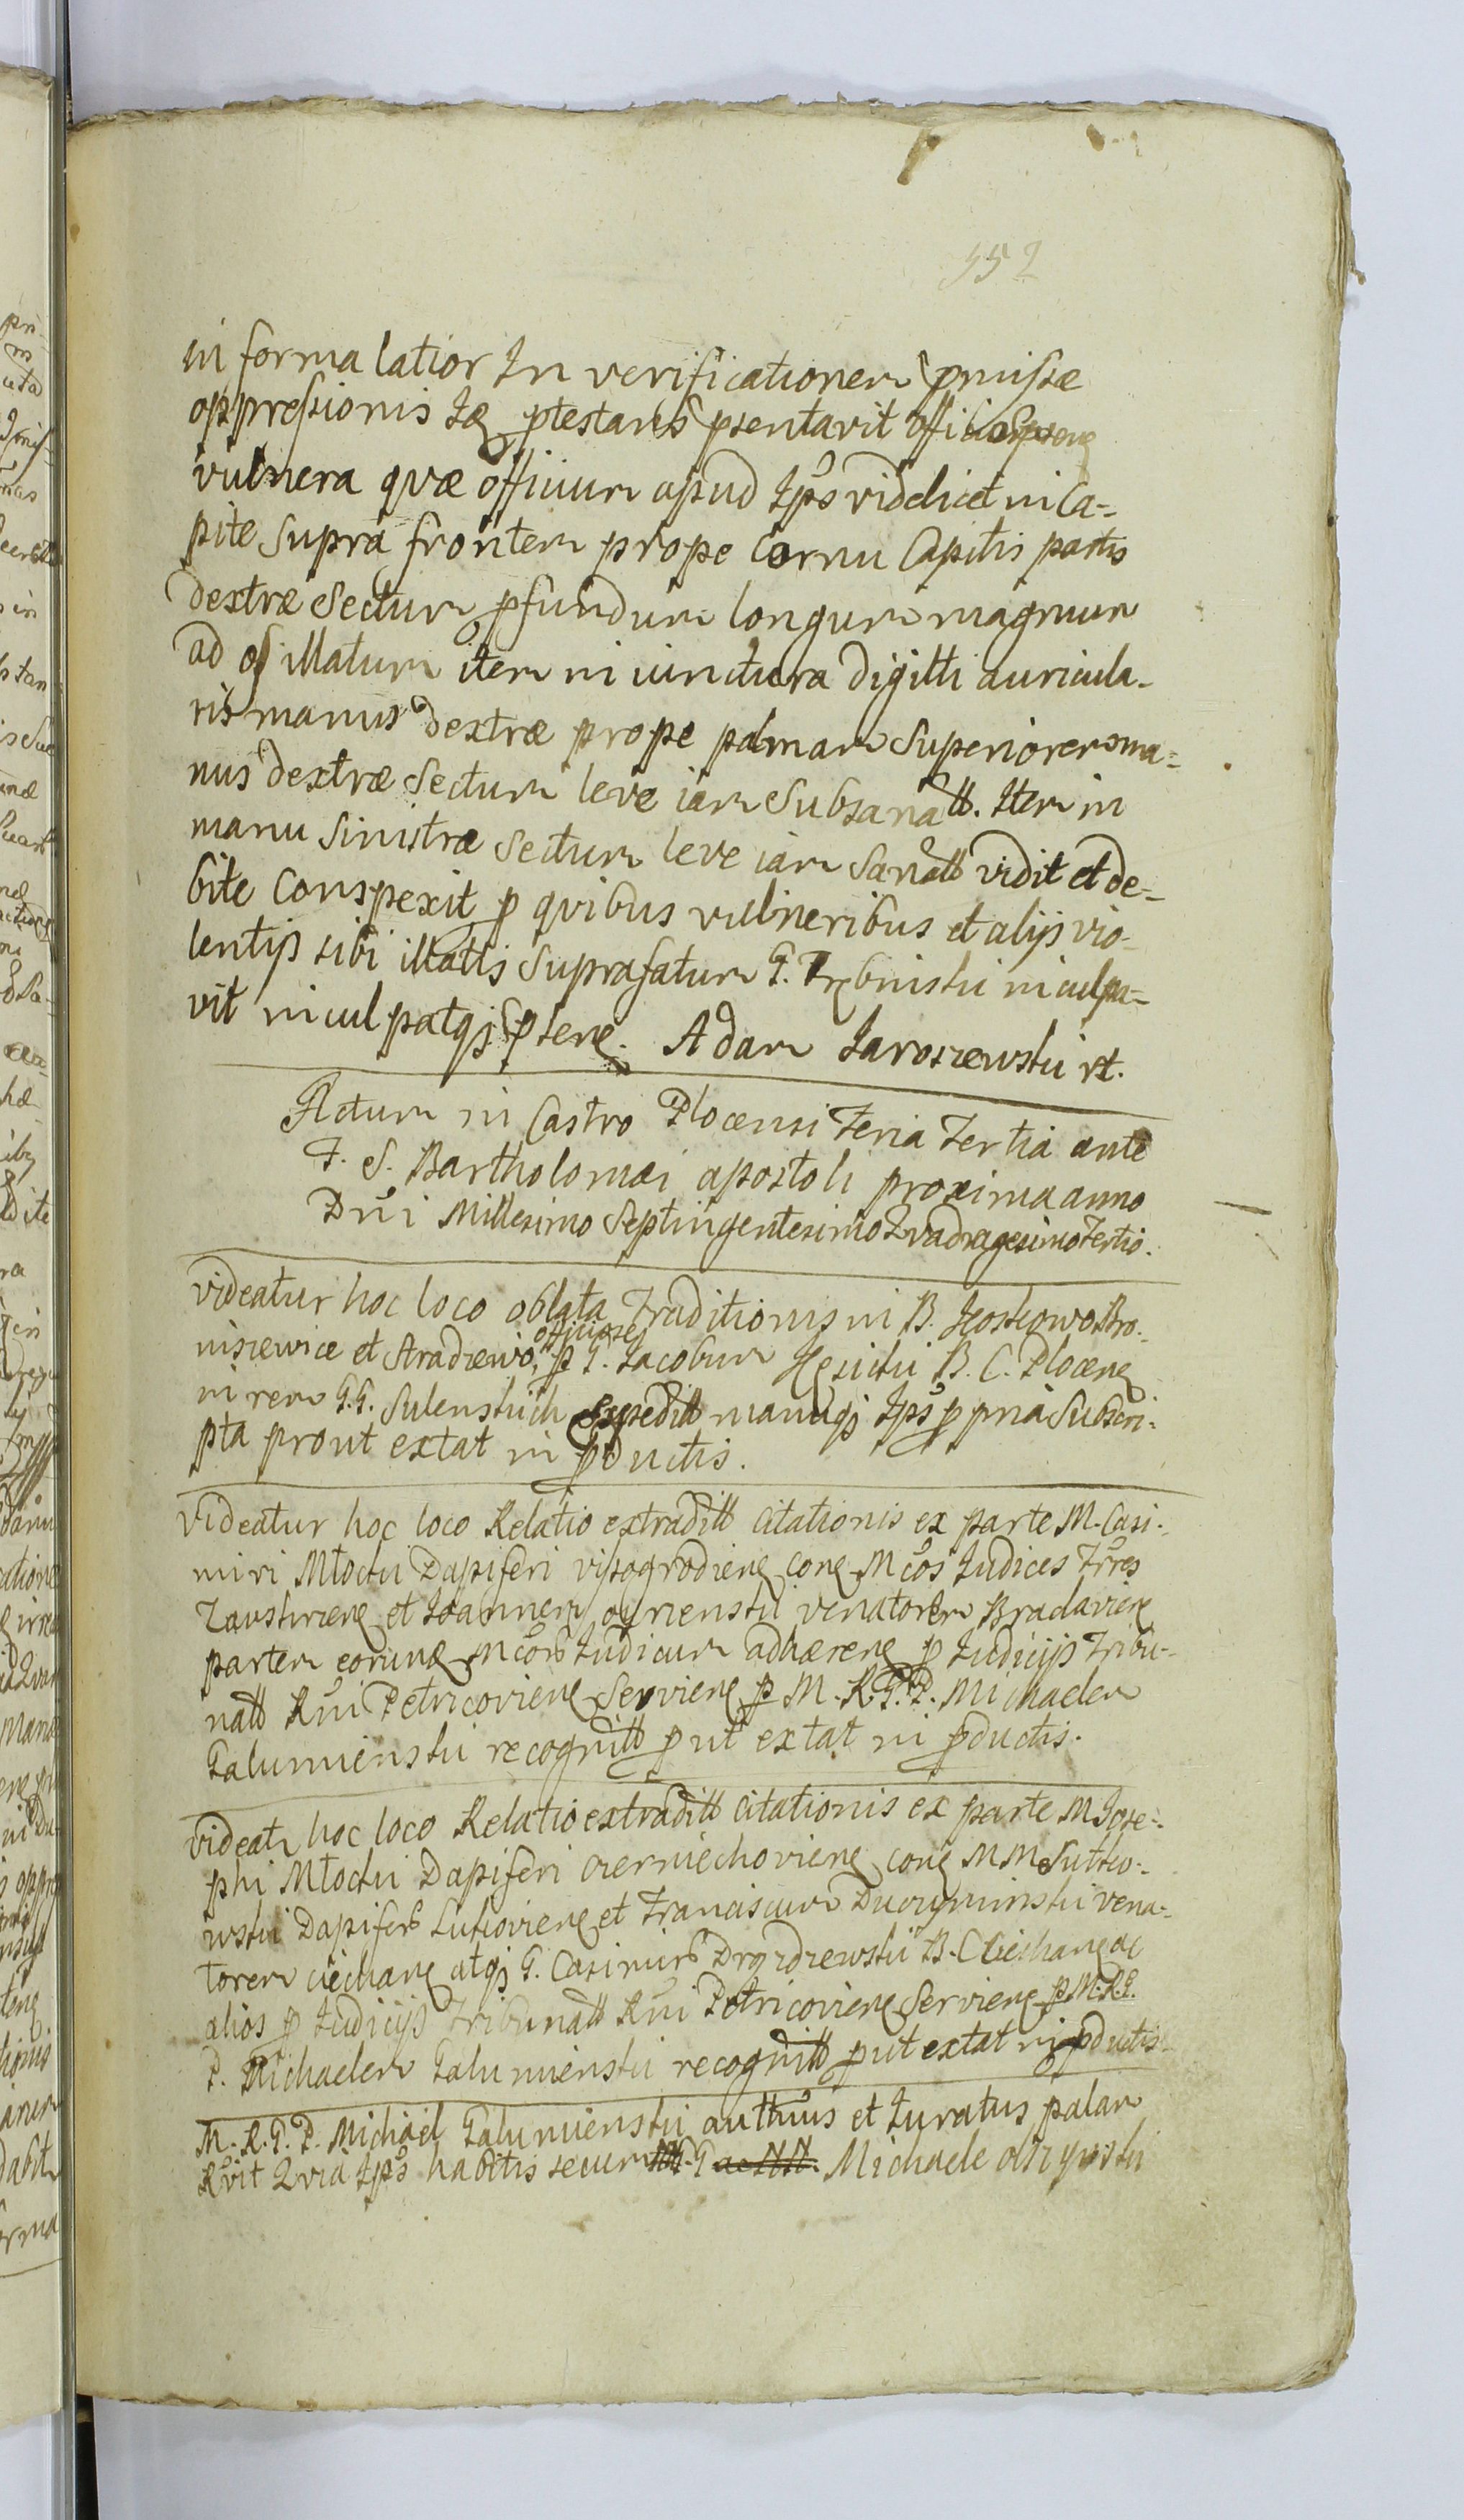 552
in forma latior In verificationem pmissæ
oppressionis Iæ ptestans psentavit offi
vulnera qvæ officium apud Ips videlicet in Ca-
pite supra frontem prope Cornu Capitis partis
dextræ Sectum pfundum longum magnum
ad os illatum item in iunctura digitti auricula-
ris manus dextræ prope palmam Superiorem ma-
nus dextræ Sectum leve iam Subsanatt. Item in
manu Sinistræ Sectum leve iam Sanatt vidit et de-
bite Conspexit p qvibus vulneribus et alijs vio-
lentijs sibi illatis Suprafatum G. Trębinski in culpa-
vit inculpatqȝ pten. Adam Jaroszewski rt.
Actum in Castro Plocensi Feria Tertia ante
F. S. Bartholomæi apostoli proxima anno
Dni Millesimo Septingentesimo Qvadragesimo Tertio.
videatur hoc loco oblata Traditionis in B. Kostrowo Bro-
niszewice et Stradzewo, officiose p G. Jacobum B. C. Plocen
in rem G.G. Sulenskich Expeditt manuqȝ Ips ppria Subscri-
pta prout extat in pductis.
Videatur hoc loco Relatio extraditt Citationis ex parte M. Casi-
miri Młocki Dapiferi vissogrodien con Mcos Iudices Trres
Zawskrzen et Joannem venatorem Bradavien
partem eorund Mcor Iudicum adhæren p Iudicijs Tribu-
natt Rni Petricovien Servien p M. R. G. P. Michaelem
Galumienski recognitt put extat in pductis.
videatr hoc loco Relatio extraditt Citationis ex parte M Jose-
phi Młocki Dapiferi czerniechovien con M M Sutko-
wski Dapifer Lukovien et Franciscum Duczyminski vena-
torem ciechan atqȝ G. Casimir Drozdzewski B. C Ciechan ac
alios p Iudicijs Tribunatt Rni Petricovien Servien p M. R. G.
P. Michaelem Galumienski recognitt put extat in pductis
M. R. G. P. Michael Galumienski autthus et Iuratus palam
Rvit Qvia Ips habitis secum G ac Michaele